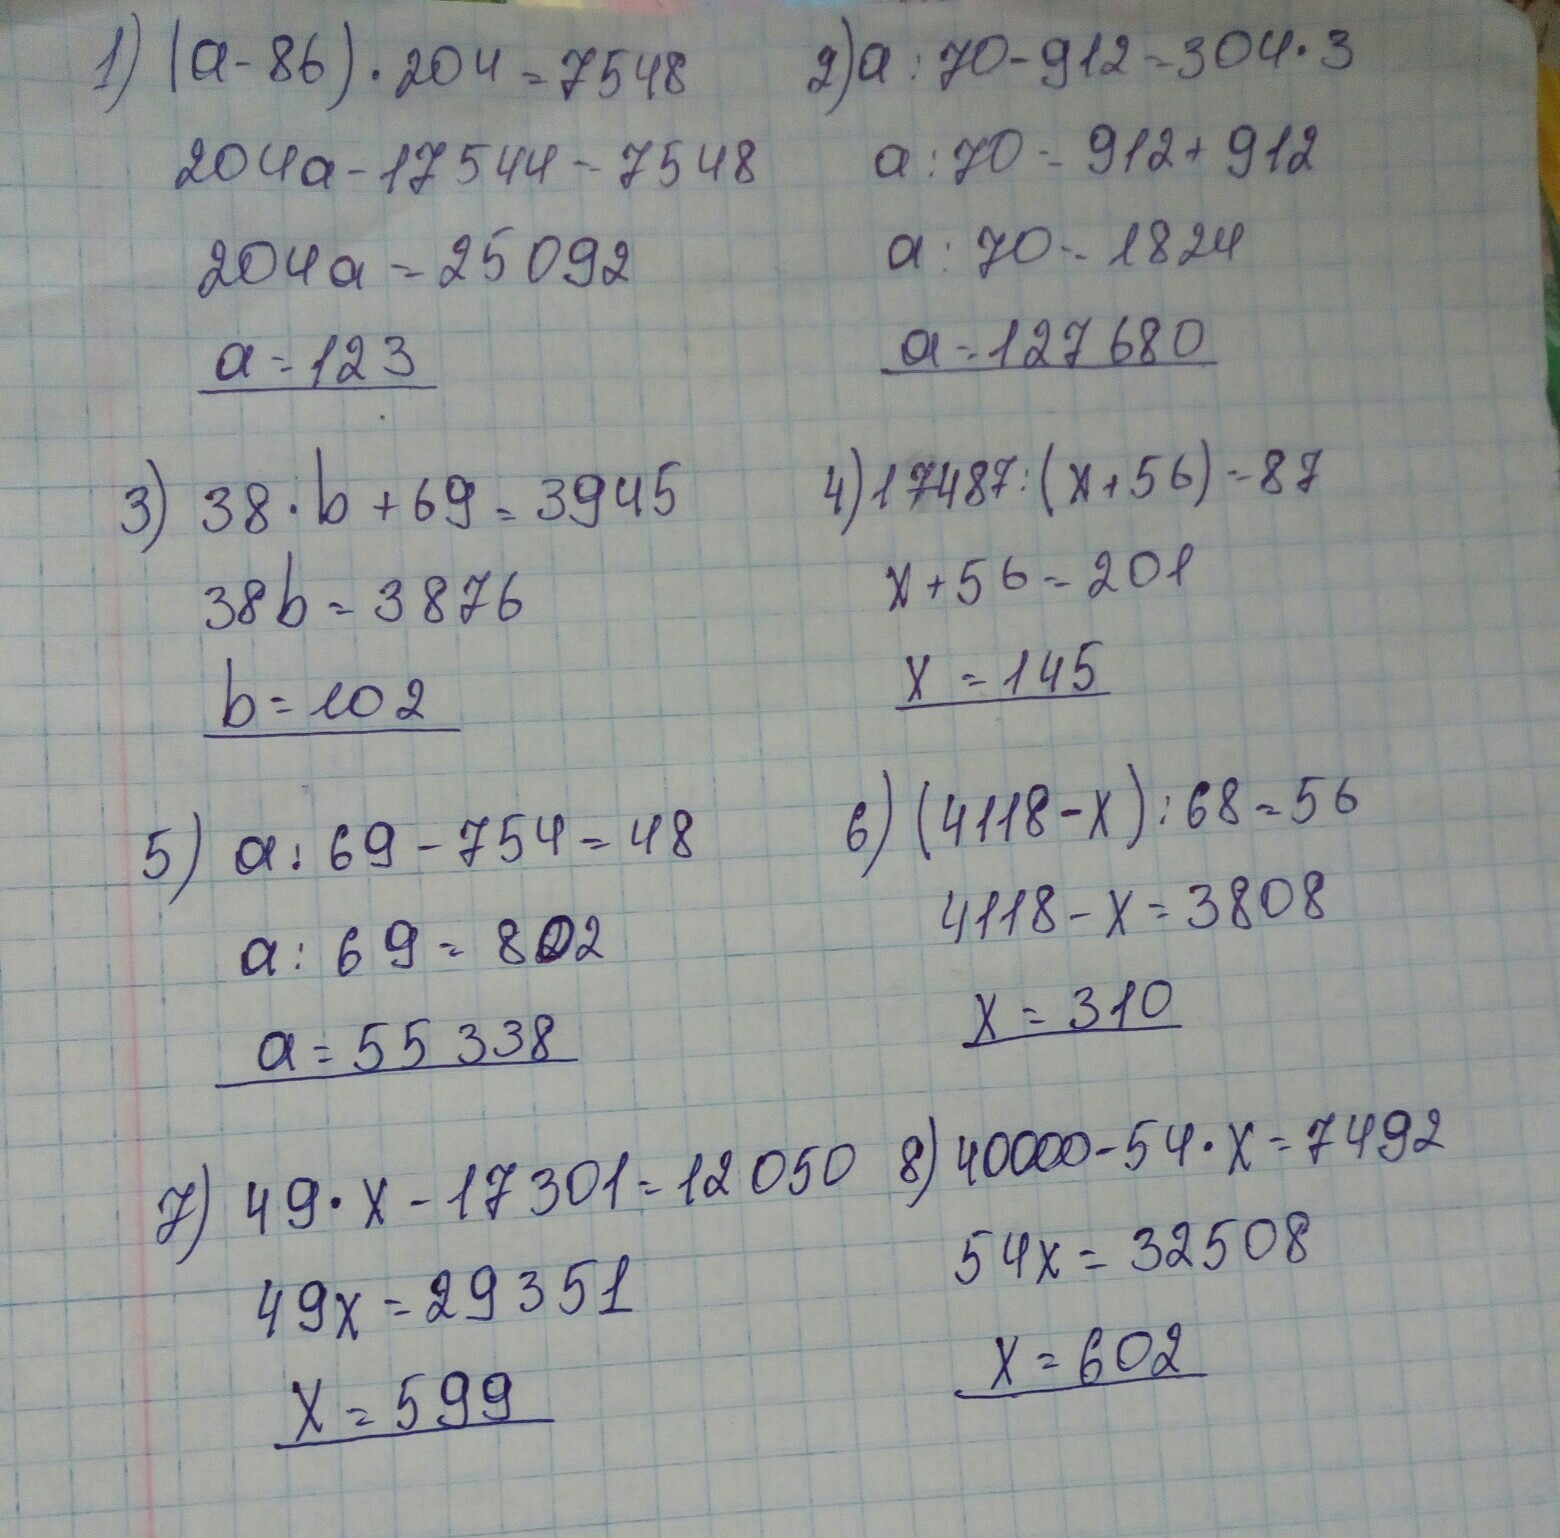 1) (a-86)·204=7548
204a-17544=7548
204a=25092
a=123
2) a:70-912=304·3
a:70=912+912
a:70=1824
a=127680
3) 38·b+69=3945
38b=3876
b=102
4) 17487:(x+56)=87
x+56=201
x=145
5) a:69-754=48
a:69=802
a=55338
6) (4118-x):68=56
4118-x=3808
x=310
7) 49·x-17301=12050
49x=29351
x=599
8) 40000-54·x=7492
54x=32508
x=602